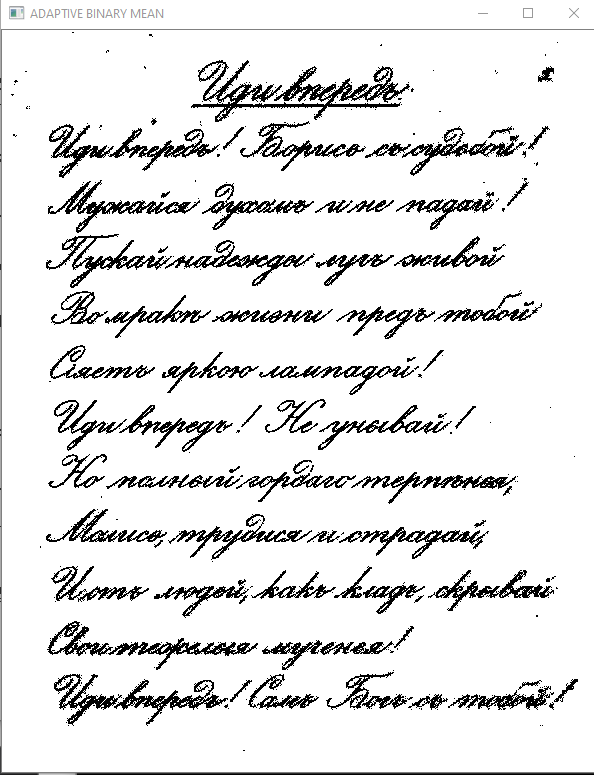 ADAPTIVE BINARY MEAN
Иди впередъ.
Иди впередъ! Борись съ судьбой!
Мужайся духомъ и не падай!
Пускай надежды лучъ живой
Во мракѣ жизни предъ тобой
Сіяетъ яркою лампадой!
Иди впередъ! Не унывай!
Но полный гордаго терпѣнья,
Молись, трудися и страдай,
И отъ людей, какъ кладъ, скрывай
Свои тяжелыя мученья!
Иди впередъ! Самъ Богъ съ тобой!